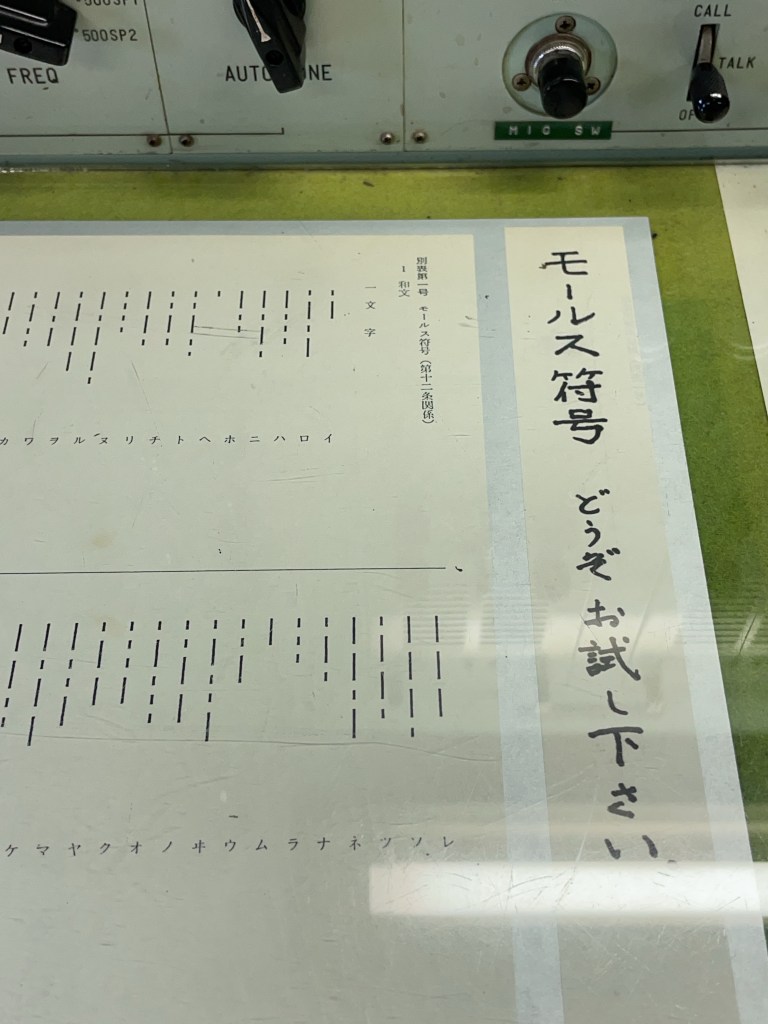 500SP1
500SP2
FREQ
CALL
TALK
MIC SW
モールス符号 どうぞお試し下さい
別表第一号 モールス符号(第十二条関係)
1 和文
一 文 字
イロハニホヘトチリヌルヲワカ
レソツネナラムウヰノオクヤマケ